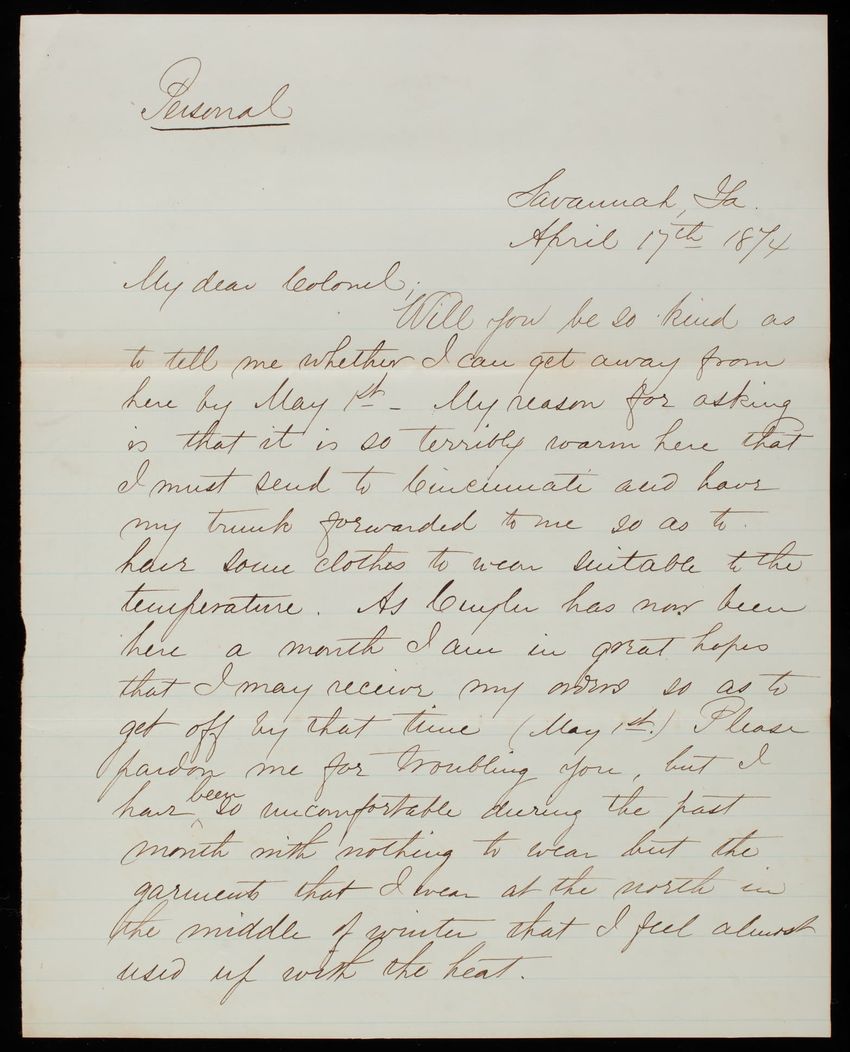 Personal
Savannah, Ga.
April 17th 1874
My dear Colonel,
Will you be so kind as
to tell me whether I can get away from
here by May 1st - My reason for asking
is that it is so terribly warm here that
I must send to Cincinnati and have
my trunk forwarded to me so as to
have some clothes to wear suitable to the
temperature. As Cuyler has now been
here a month I am in great hopes
that I may receive my orders so as to
get off by that time (May 1st.) Please
pardon me for troubling you, but I
have been so uncomfortable during the past
month with nothing to wear but the
garments that I wear at the north in
the middle of winter that I feel almost
used up with the heat.